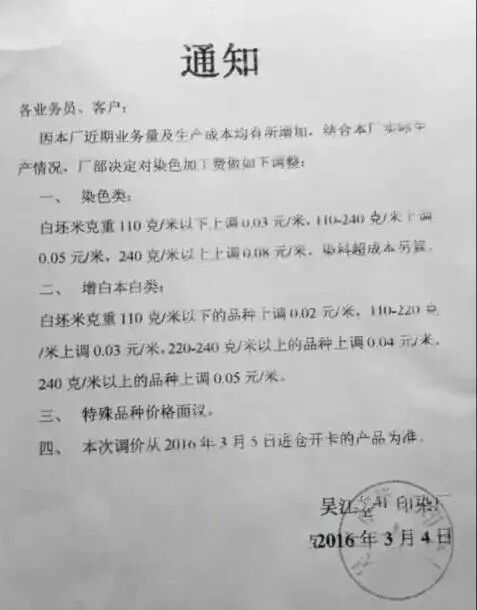 通知
各业务员、客户:
因本厂近期业务量及生产成本均有所增加,结合本厂实际生
产情况,厂部决定对染色加工费做如下调整:
一、 染色类:
白坯米克重110克/米以下上调0.03元/米,110-240克/米上调
0.05元/米,240克/米以上上调0.08元/米,染料超成本另算。
二、 增白本白类:
白坯米克重110克/米以下的品种上调0.02元/米,110-220克
/米上调0.03元/米,220-240克/米以上的品种上调0.04元/米,
240克/米以上的品种上调0.05元/米。
三、 特殊品种价格面议。
四、 本次调价从2016年3月5日进仓开卡的产品为准。
吴江 印染
2016年3月4日